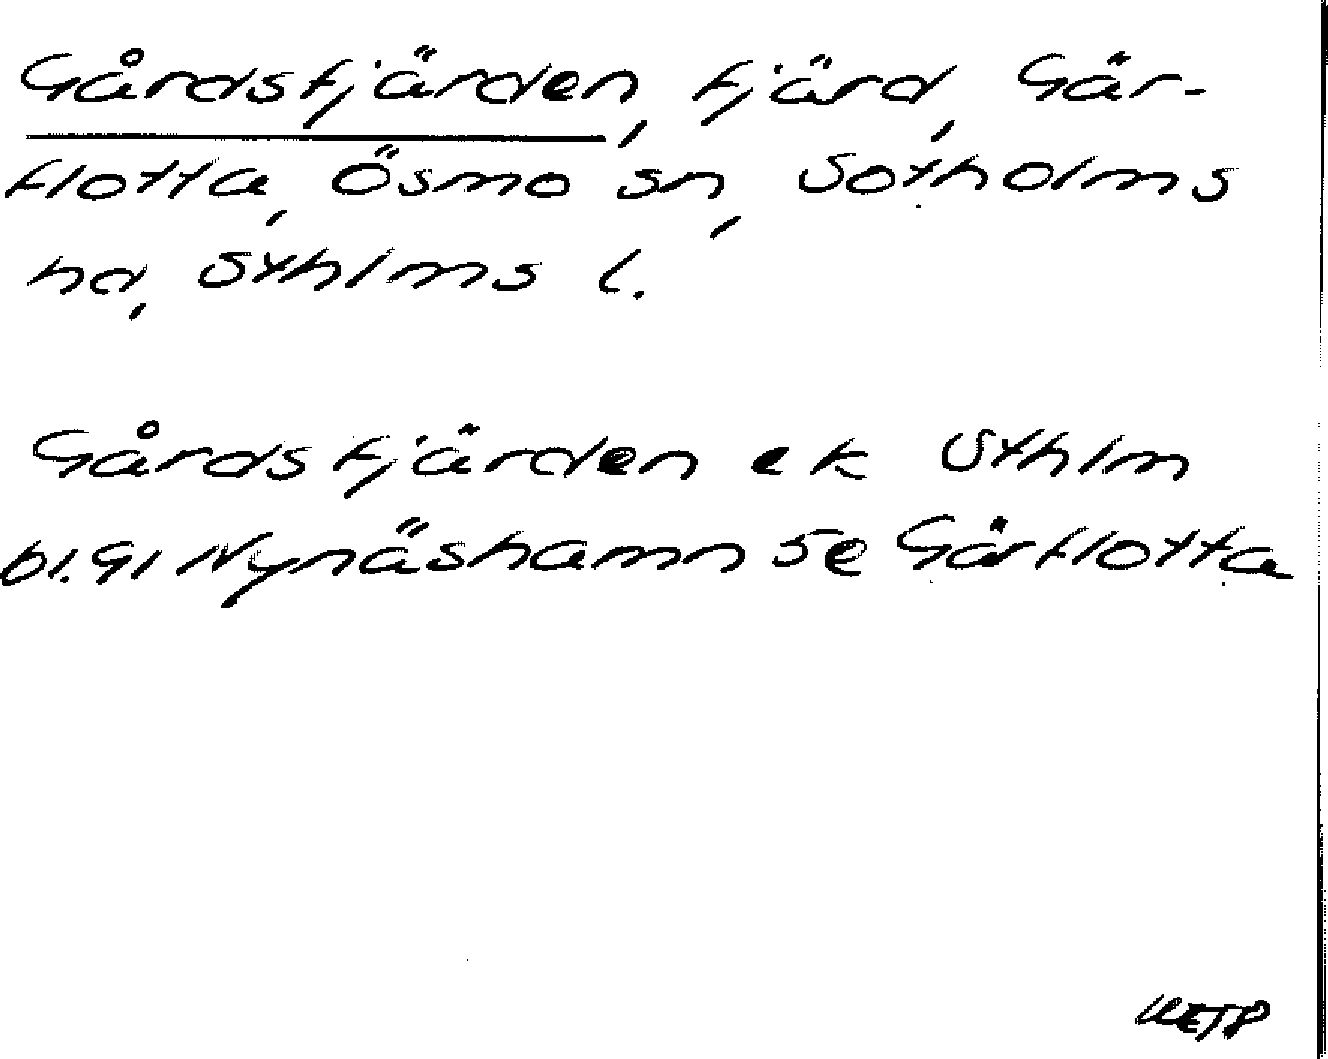 Gårdsfjärden, fjärd, Går-
flotta, Ösmo sn, Sotholms
hd, Sthlms l.
Gårdsfjärden ek Sthlm
bl. 91 Nynäshamn SE Gårflotta